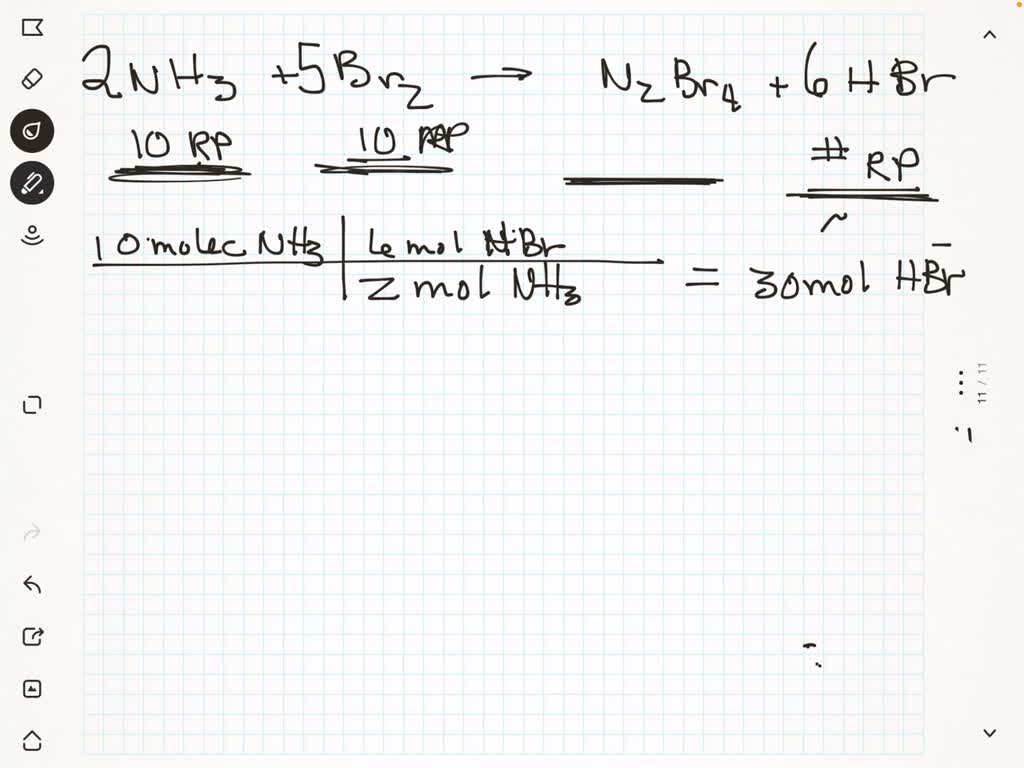 2NH3 + 5Br2 → N2Br4 + 6HBr
10 RP 10 RP # RP
10 molec NH3 | 6 mol HBr
2 mol NH3 = 30 mol HBr
11 / 11